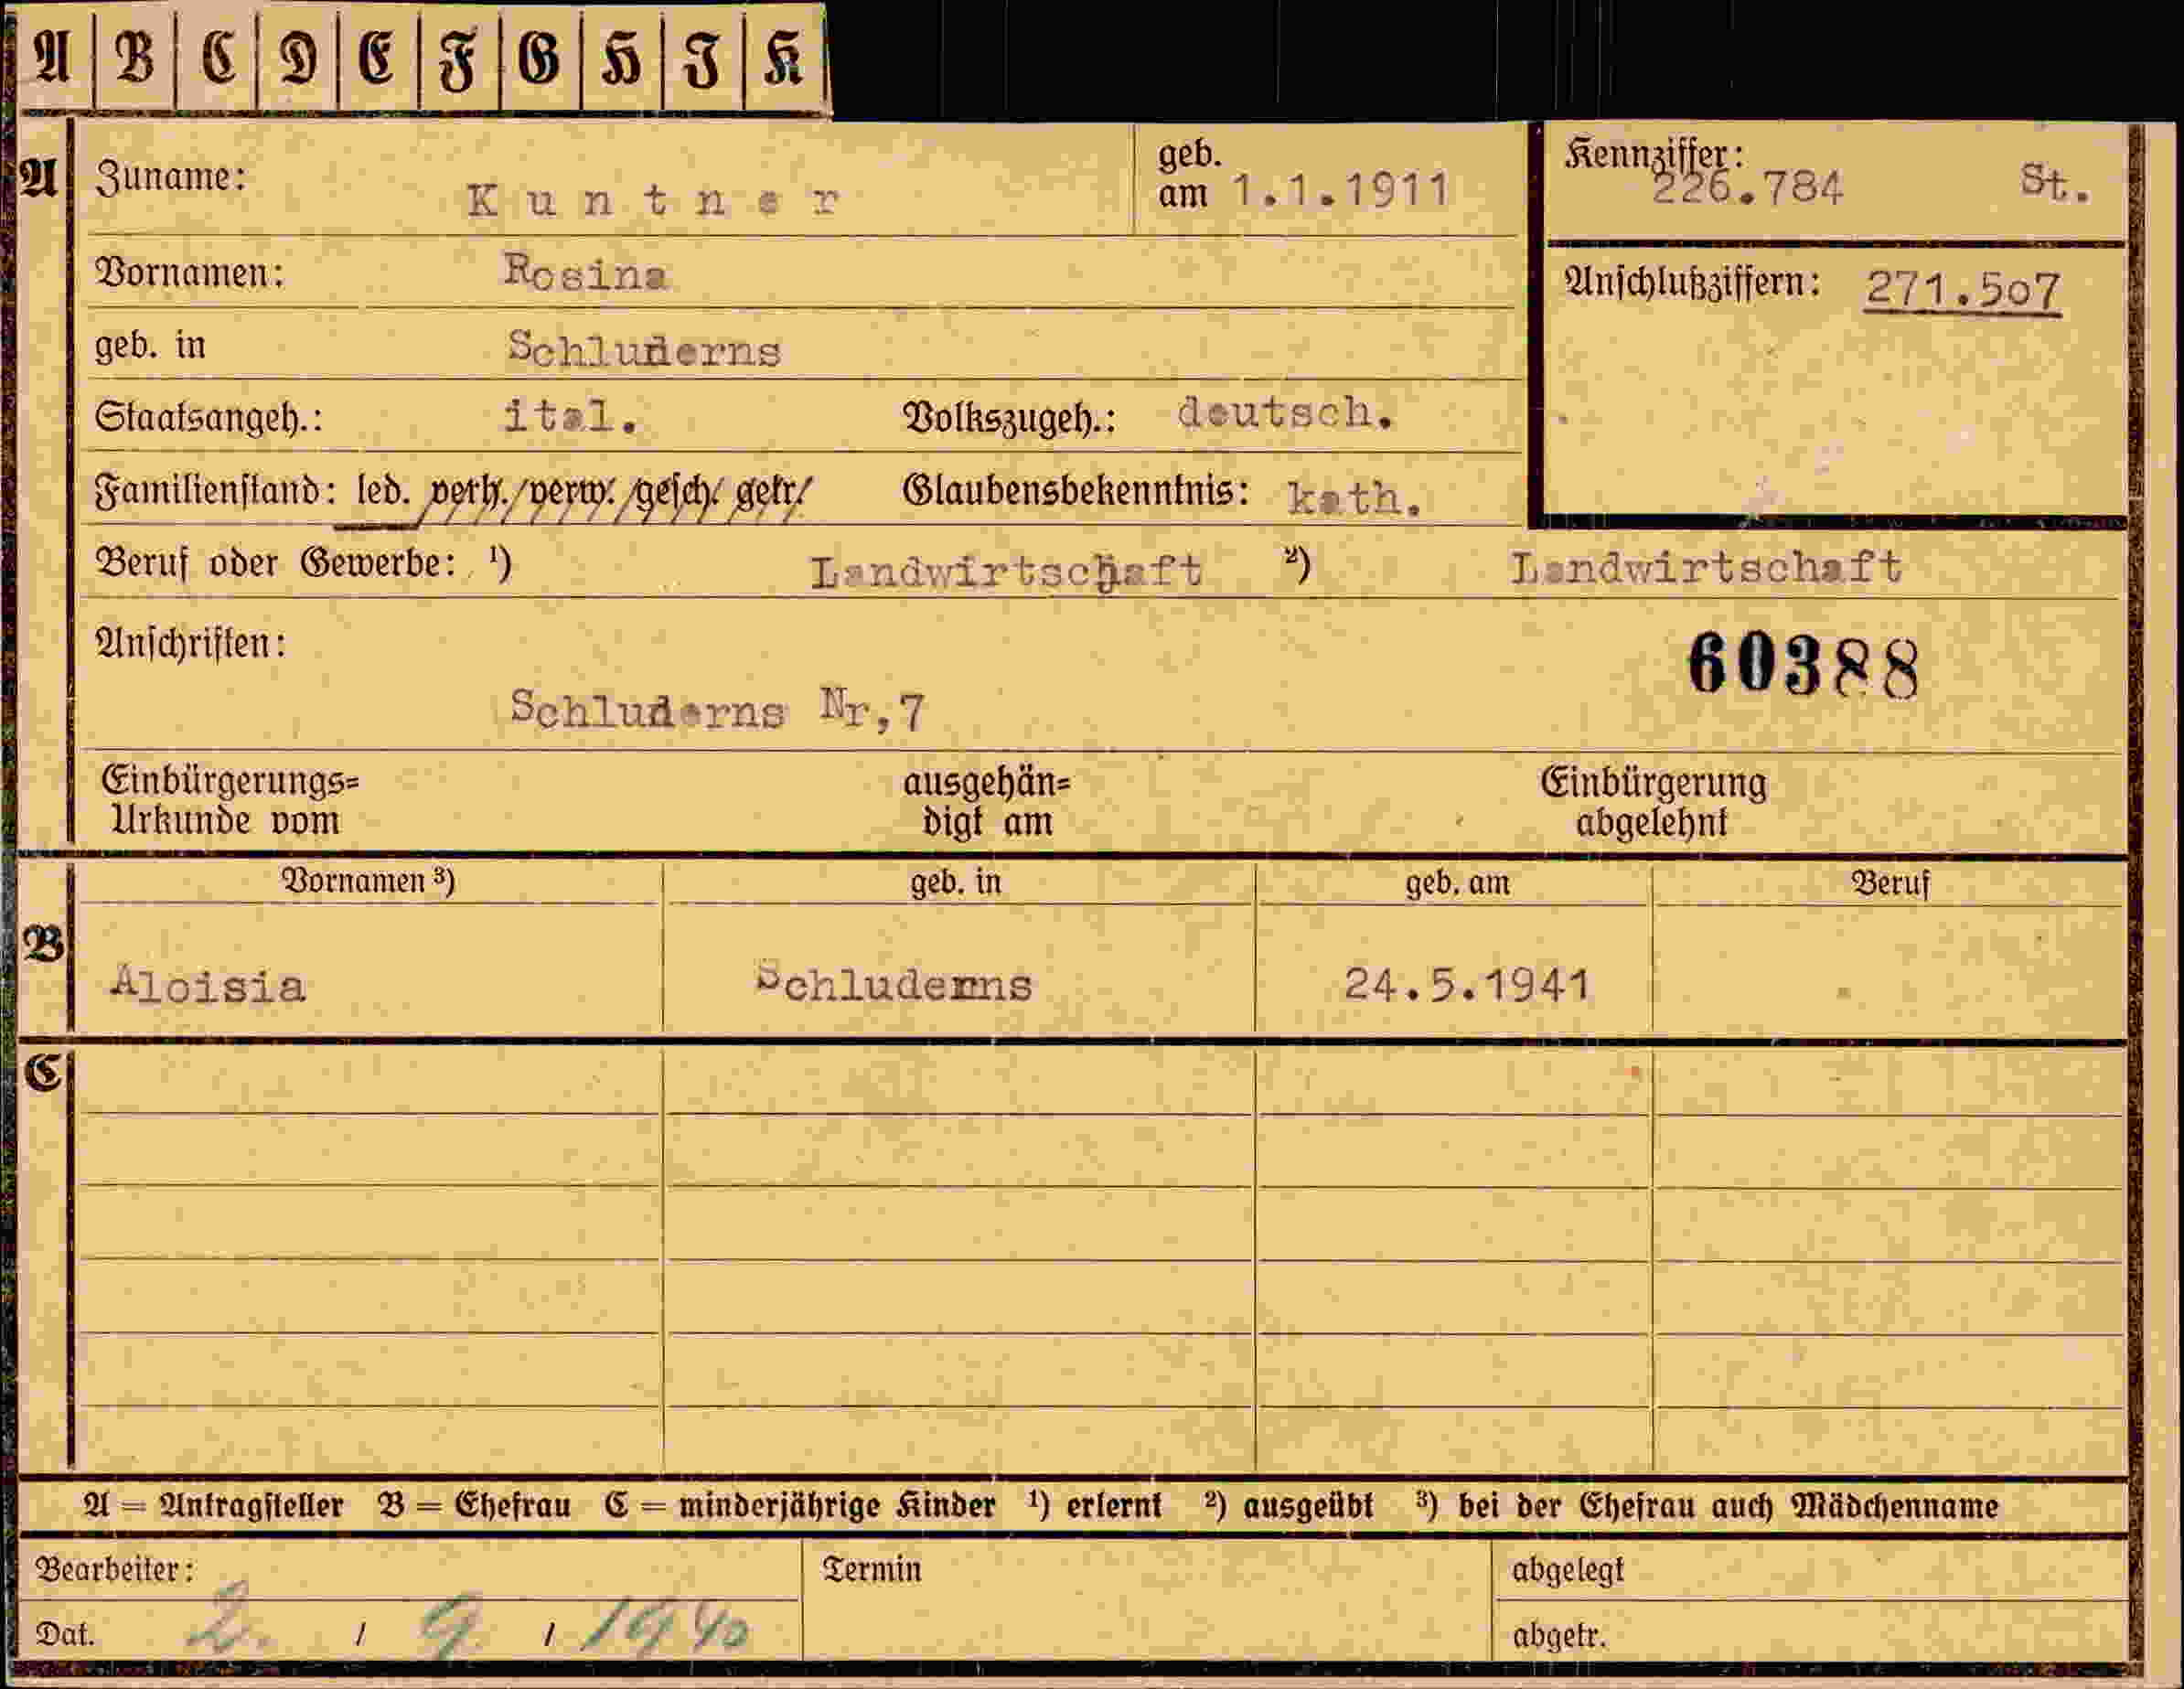 A B C D E F G H I K
A Zuname: Kuntner geb. am 1.1.1911 Kennziffer: 226.784 St.
Vornamen: Rosina Anschlußziffern: 271.507
geb. in Schluderns
Staatsangeh.: ital. Volkszugeh.: deutsch.
Familienstand: led. verh./verw./gesch./getr./ Glaubensbekenntnis: kath.
Beruf oder Gewerbe: ¹) Landwirtschaft ²) Landwirtschaft
Anschriften: 60388
Schluderns Nr,7
Einbürgerungs= ausgehän= Einbürgerung
Urkunde vom digt am abgelehnt
Vornamen ³) geb. in geb. am Beruf
B Aloisia Schluderns 24.5.1941
C
A = Antragsteller B = Ehefrau C = minderjährige Kinder ¹) erlernt ²) ausgeübt ³) bei der Ehefrau auch Mädchenname
Bearbeiter: Termin abgelegt
Dat. 2. / 9 / 1940 abgetr.